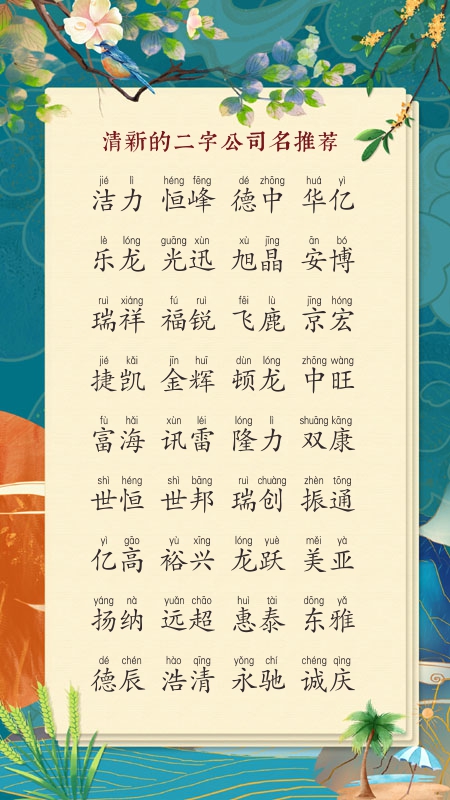 清新的二字公司名推荐
jié lì héng fēng dé zhōng huá yì
洁力 恒峰 德中 华亿
lè lóng guāng xùn xù jīng ān bó
乐龙 光迅 旭晶 安博
ruì xiáng fú ruì fēi lù jīng hóng
瑞祥 福锐 飞鹿 京宏
jié kǎi jīn huī dùn lóng zhōng wàng
捷凯 金辉 顿龙 中旺
fù hǎi xùn léi lóng lì shuāng kāng
富海 讯雷 隆力 双康
shì héng shì bāng ruì chuàng zhèn tōng
世恒 世邦 瑞创 振通
yì gāo yù xīng lóng yuè měi yà
亿高 裕兴 龙跃 美亚
yáng nà yuǎn chāo huì tài dōng yǎ
扬纳 远超 惠泰 东雅
dé chén hào qīng yǒng chí chéng qìng
德辰 浩清 永驰 诚庆